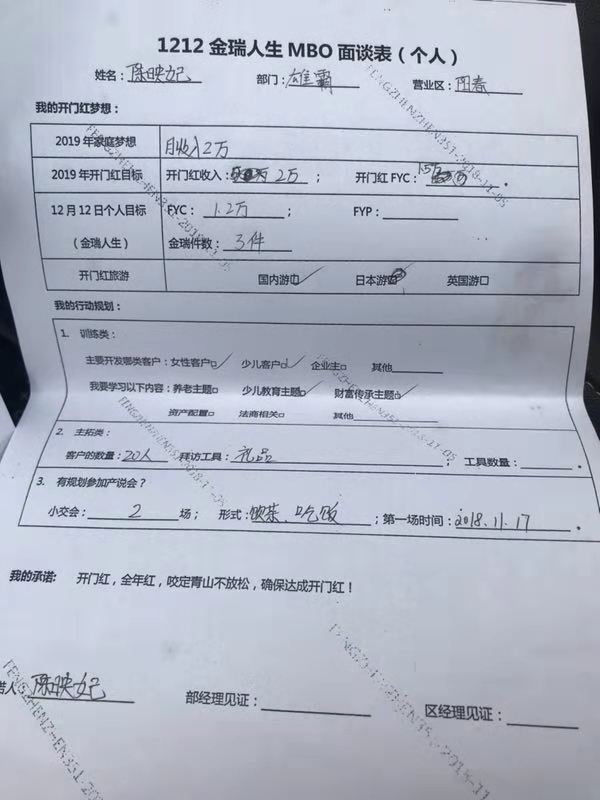 1212 金瑞人生 MBO 面谈表（个人）
姓名：陈映妃 部门：雄霸 营业区：阳春
我的开门红梦想：
2019 年家庭梦想 月收入2万
2019 年开门红目标 开门红收入：2万 ； 开门红 FYC：1.5万 。
12 月 12 日个人目标 FYC：1.2万 ； FYP：
（金瑞人生） 金瑞件数：3件
开门红旅游 国内游□✓ 日本游□ 英国游□
我的行动规划：
1. 训练类：
主要开发哪类客户：女性客户□✓ 少儿客户□✓ 企业主□ 其他
我要学习以下内容：养老主题□ 少儿教育主题□✓ 财富传承主题□✓
资产配置□ 法商相关□ 其他
2. 主拓类：
客户的数量：20人 拜访工具：礼品 ； 工具数量： 。
3. 有规划参加产说会？
小交会：2 场； 形式：饮茶、吃饭 ；第一场时间：2018.11.17 。
我的承诺： 开门红，全年红，咬定青山不放松，确保达成开门红！
诺人：陈映妃 部经理见证： 区经理见证：
FENGZHENZHEN351-2018-11-05
FENGZHENZHEN351-2018-11-05
FENGZHENZHEN351-2018-11-05
FENGZHENZHEN351-2018-11-05